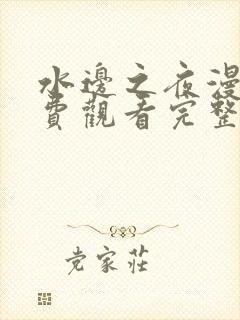 水邊之夜漫
費觀看完整
党家莊